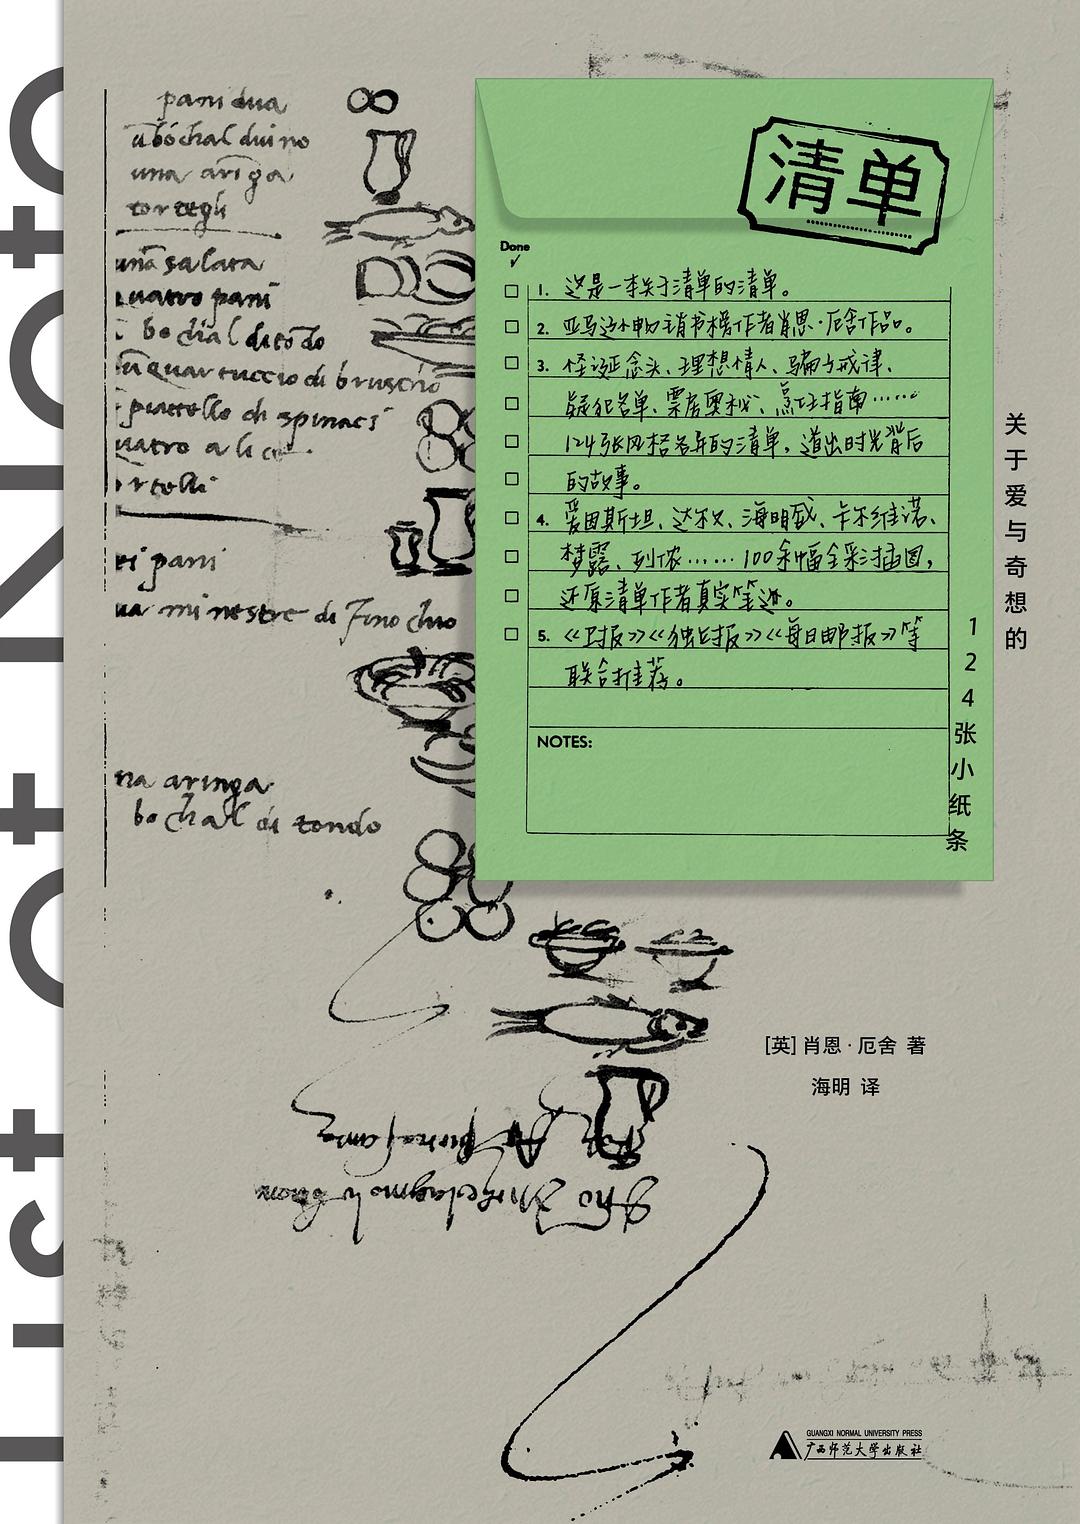 List Of Note
pani dua
u bochal duino
una aringa
tortegli
una salata
quatro pani
bochal di todo
un quartuccio di bruscho
piattello di spinaci
quatro alice
ortelli
ei pani
ua minestre di finochio
na aringa
bochal di tondo
清单
Done
1. 这是一本关于清单的清单。
2. 亚马逊和畅销书榜作者肖恩·厄舍作品。
3. 怪诞念头、理想情人、骗子戒律、
疑犯名单、票房奥秘、烹饪指南……
124张风格各异的清单,道出时光背后
的故事。
4. 爱因斯坦、达·芬奇、海明威、卡尔维诺、
梦露、列侬……100余幅全彩插图,
还原清单作者真实笔迹。
5. 《卫报》《独立报》《每日邮报》等
联合推荐。
NOTES:
关于爱与奇想的
124张小纸条
[英] 肖恩·厄舍 著
海明 译
GUANGXI NORMAL UNIVERSITY PRESS
广西师范大学出版社